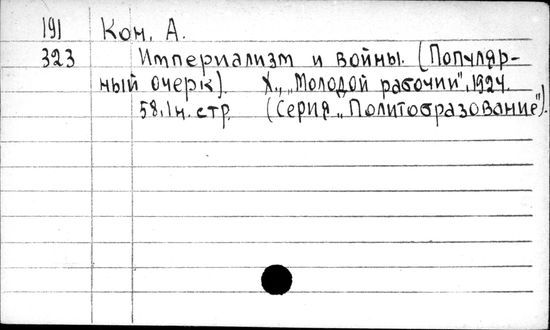 191 Кон, А.
323 Империализм и войны. (Популяр-
ный очерк). Х., „Молодой рабочий", 1924.
58, 1 н. стр. (Серия „Политобразование").